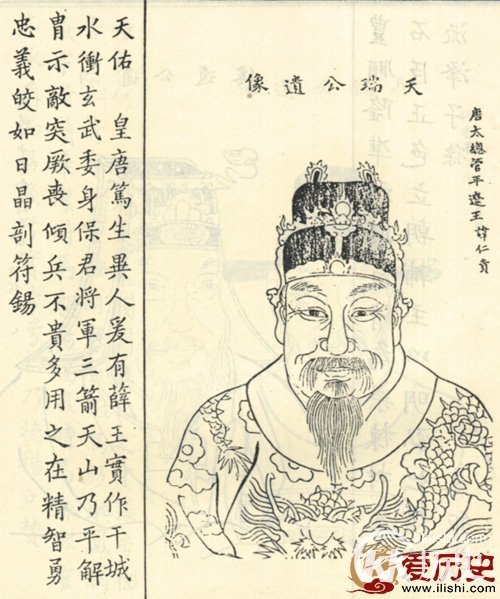 天瑞公遺像
唐太總管平遼王諱仁貴
天佑 皇唐篤生異人爰有薛王實作干城
水衝玄武委身保君將軍三箭天山乃平解
冑示敵突厥喪傾兵不貴多用之在精智勇
忠義皎如日晶剖符錫
爱历史
www.ilishi.com